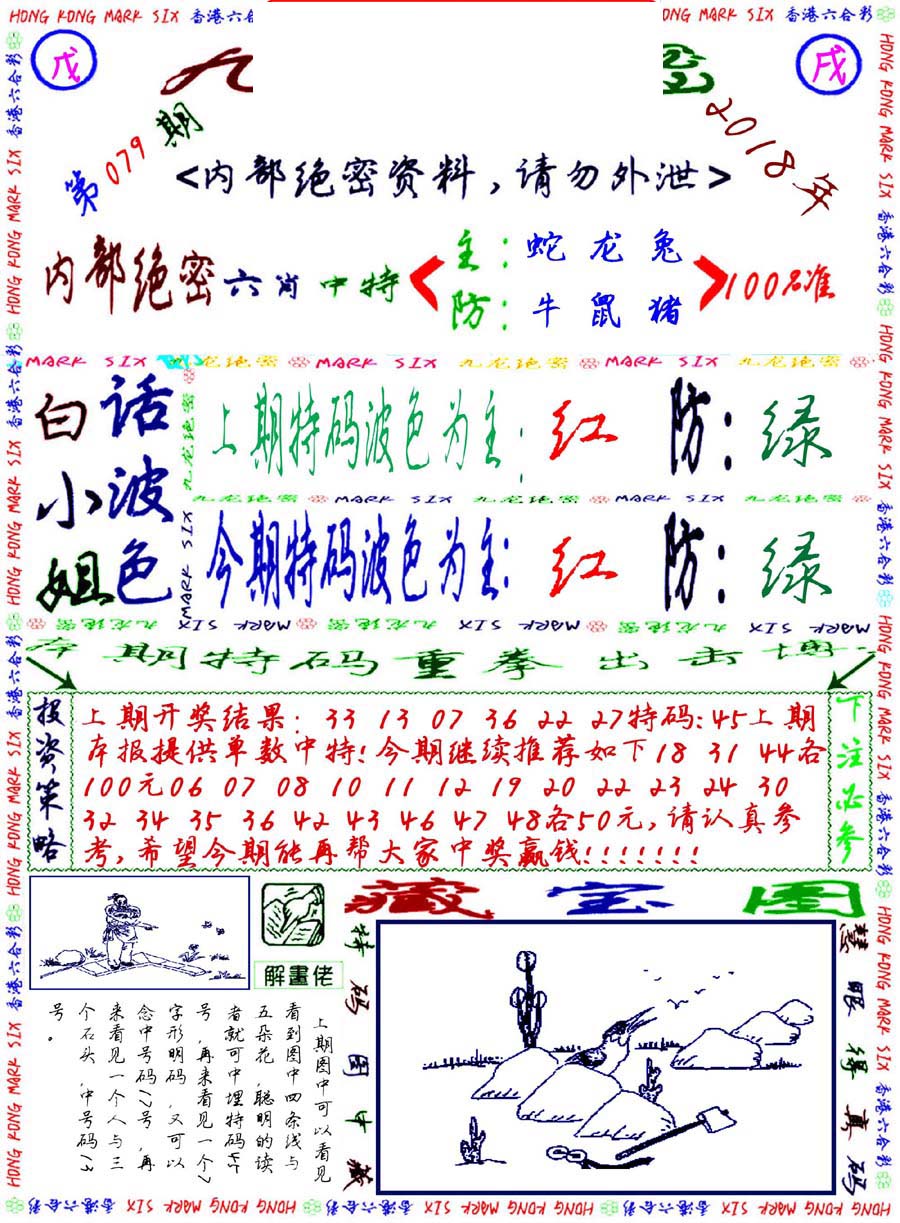 HONG KONG MARK SIX 香港六合彩
戊
九
戌
第079期
2018年
<内部绝密资料,请勿外泄>
内部绝密六肖中特
主:蛇 龙 兔
防:牛 鼠 猪
100%准
MARK SIX 九龙绝密 MARK SIX 九龙绝密 MARK SIX 九龙绝密
白话
小波
姐色
上期特码波色为主:红 防:绿
九龙绝密 MARK SIX 九龙绝密 MARK SIX 九龙绝密
今期特码波色为主:红 防:绿
MARK SIX 九龙绝密 MARK SIX 九龙绝密 MARK SIX 九龙绝密
本期特码重拳出击博
投资策略
上期开奖结果: 33 13 07 36 22 27特码:45上期
本报提供单数中特!今期继续推荐如下18 31 44各
100元06 07 08 10 11 12 19 20 22 23 24 30
32 34 35 36 42 43 46 47 48各50元,请认真参
考,希望今期能再帮大家中奖赢钱!!!!!!!
下注必参
解畫佬
藏宝图
特码图中藏
慧眼得真码
上期图中可以看见
看到图中四条线与
五朵花,聪明的读
者就可中埋特码45
号,再来看见一个7
字形明码,又可以
念中号码17号,再
来看见一个人与三
个石头,中号码13
号。
HONG KONG MARK SIX 香港六合彩